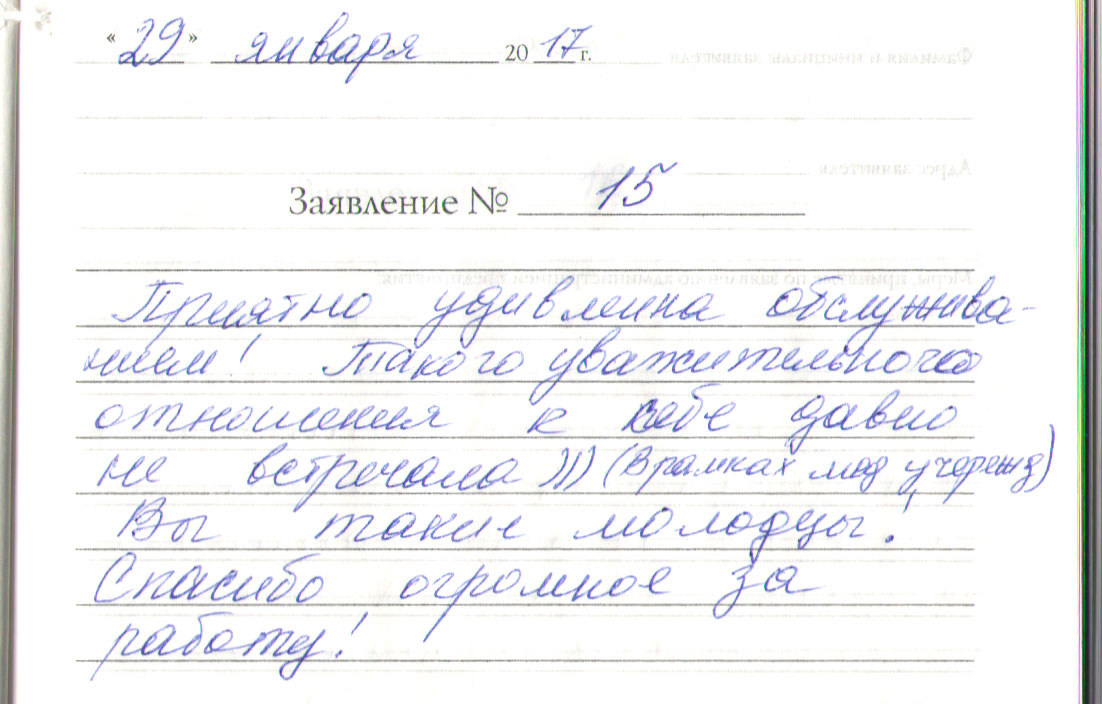 «29» января 2017 г.
Заявление № 15
Приятно удивлена обслужива-
нием! Такого уважительного
отношения к себе давно
не встречала))) (В рамках мед учережд)
Вы такие молодцы!
Спасибо огромное за
работу!